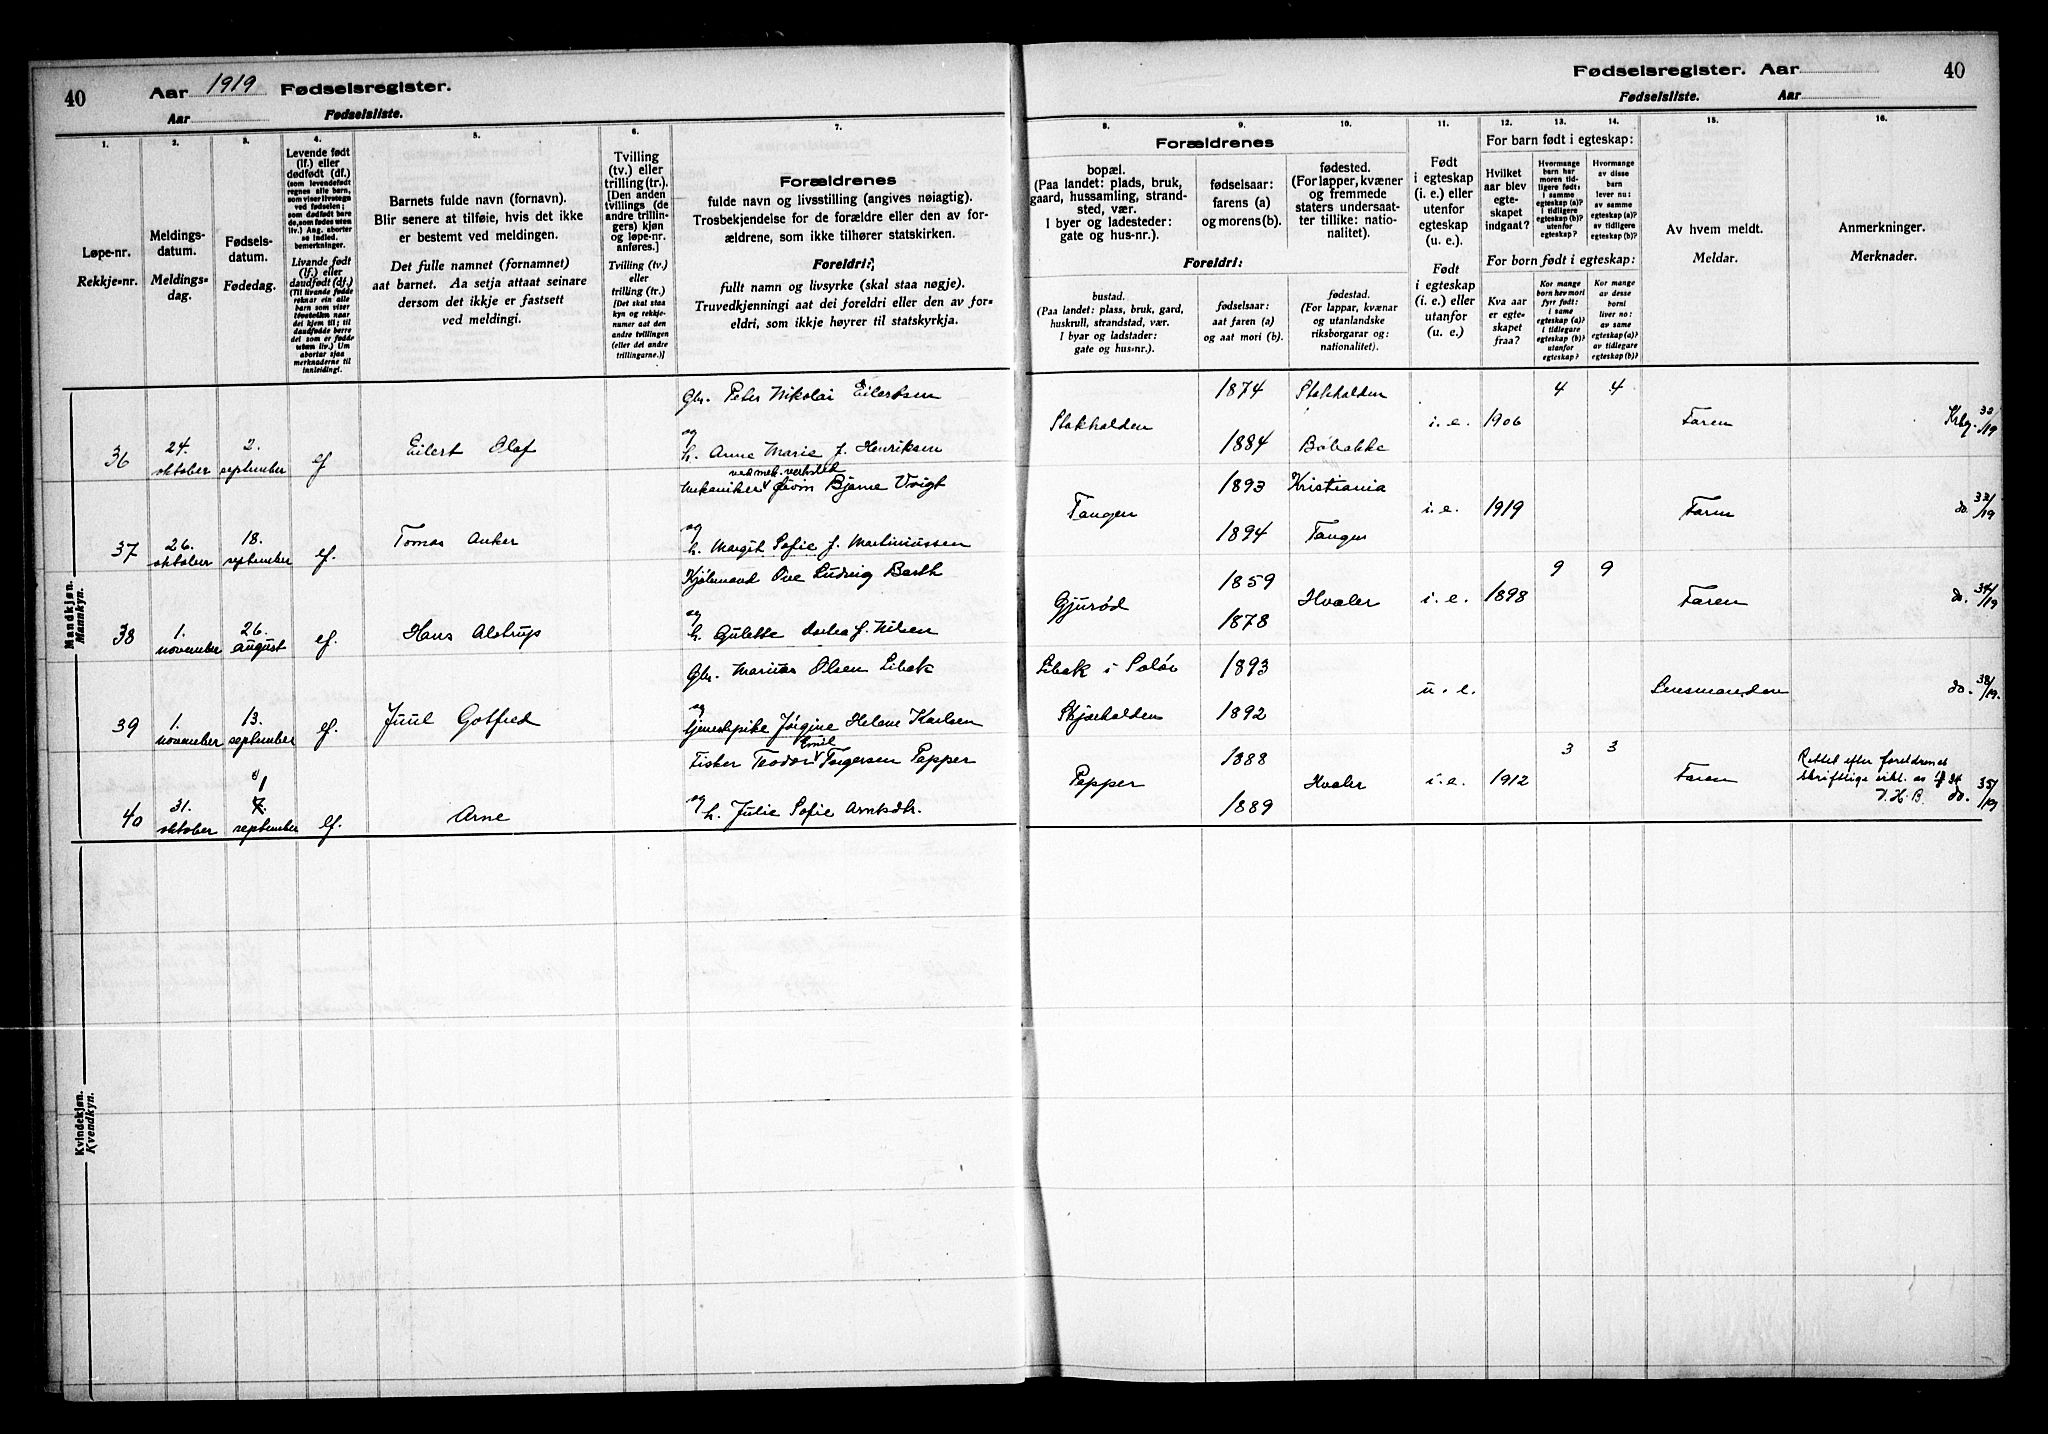 40
Aar 1919 Fødselsregister.
Aar Fødselsliste.
1.
Løpe-nr.
Rekkje-nr.
2.
Meldings-
datum.
Meldings-
dag.
3.
Fødsels-
datum.
Fødedag.
4.
Levende født
(lf.) eller
dødfødt (df.)
(som levendefødt
regnes alle barn,
som viser livstegn
ved fødselen;
som dødfødt bare
de, som fødes uten
liv.) Ang. aborter
se indled.
bemerkninger.
Livande fødd
(lf.) eller
daudfødd (df.)
(Til livande fødde
reknar ein alle
born som viser
livsteikn naar
dei kjem til; til
daudfødde berre
dei som er fødde
utan liv.) Um
abortar sjaa
merknaderne til
innleiding!.
5.
Barnets fulde navn (fornavn).
Blir senere at tilføie, hvis det ikke
er bestemt ved meldingen.
Det fulle namnet (fornamnet)
aat barnet. Aa setja attaat seinare
dersom det ikkje er fastsett
ved meldingi.
6.
Tvilling
(tv.) eller
trilling (tr.).
[Den anden
tvillings (de
andre trillin-
gers) kjøn
og løpe-nr.
anføres.]
Tvilling (tv.)
eller
trilling (tr.)
[Det skal staa
kyn og rekkje-
numer aat den
andre tvillingen
(eller dei andre
trillingarne.)]
7.
Forældrenes
fulde navn og livsstilling (angives nøiagtig).
Trosbekjendelse for de forældre eller den av for-
ældrene, som ikke tilhører statskirken.
Foreldri:,
fullt namn og livsyrke (skal staa nøgje).
Truvedkjenningi aat dei foreldri eller den av for-
eldri, som ikkje høyrer til statskyrkja.
Mandkjøn.
Mannkyn.
36
24.
oktober
2.
september
lf
Eilert Olaf
Gbr. Peter Nikolai Eilertsen
og
h. Anne Marie f. Henriksen
37
26.
oktober
18.
september
lf.
Tomas Anker
ved mek. verksted
Mekaniker Øivin Bjarne Voigt
og
h. Margit Sofie f. Martiniussen
38
1.
november
26.
august
lf.
Hans Alstrup
Kjøbmand Ove Ludvig Barth
og
h. Gulette f. Nilsen
39
1.
november
13.
september
lf.
Juul Gotfred
Gbr. Marius Olsen Libak
og
tjenestepike Jørgine Helene Karlsen
40
31.
oktober
1
7.
september
lf.
Arne
Emil
Fisker Teodor Torgersen Pepper
og
h. Julie Sofie Arntsdtr.
Kvindekjøn.
Kvendkyn.
Fødselsregister. Aar
40
Fødselsliste. Aar
8.
Forældrenes
bopæl.
(Paa landet: plads, bruk,
gaard, hussamling, strand-
sted, vær.
I byer og ladesteder:
gate og hus-nr.).
Foreldri:
bustad.
(Paa landet: plass, bruk, gard,
huskrull, strandstad, vær.
I byar og ladstader:
gate og hus-nr.).
9.
fødselsaar:
farens (a)
og morens (b).
fødselsaar:
aat faren (a)
og aat mori (b).
10.
fødested.
(For lapper, kvæner
og fremmede
staters undersaat-
ter tillike: natio-
nalitet).
fødestad.
(For lappar, kvænar
og utanlandske
riksborgarar og:
nationalitet).
11.
Født
i egteskap
(i. e.) eller
utenfor
egteskap
(u. e.).
Født
i egteskap
(i. e.) eller
utanfor
(u. e.)
12.
For barn født i egteskap:
Hvilket
aar blev
egte-
skapet
indgaat?
For born født i egteskap:
Kva aar
er egte-
skapet
fraa?
13.
Hvormange
barn har
moren tid-
ligere født:
i samme
egteskap (a)?
i tidligere
egteskap (b)?
utenfor
egteskap?
Kor mange
born hev mori
fyrr født:
i same
egteskap (a)?
i tidlegare
egteskap (b)?
utanfor
egteskap?
14.
Hvormange
av disse
barn
lever nu:
av samme
egteskap (a)?
av tidligere
egteskap (b)?
Kor mange
av desse
borni
liver no:
av same
egteskap (a)?
av tidlegare
egteskap (b)?
15.
Av hvem meldt.
Meldar.
16.
Anmerkninger.
Merknader.
Stokholden
1874 Stokholden
1884 Bøbakke
i. e. 1906 4 4
Faren
Krbg. 32/19
Tangen
1893 Kristiania
1894 Tangen
i. e. 1919
Faren
do. 33/19
Gjurød
1859
1878
Hvaler i. e. 1898 9 9
Faren
do. 34/19
Libak i Solør 1893
Skjærholden 1892
u. e.
Lensmanden
do. 38/19.
Pepper
1888
1889
Hvaler i. e. 1912 3 3
Faren
Rettet efter foreldrenes
skriftlige erkl. av
V. H. B. do. 35/19